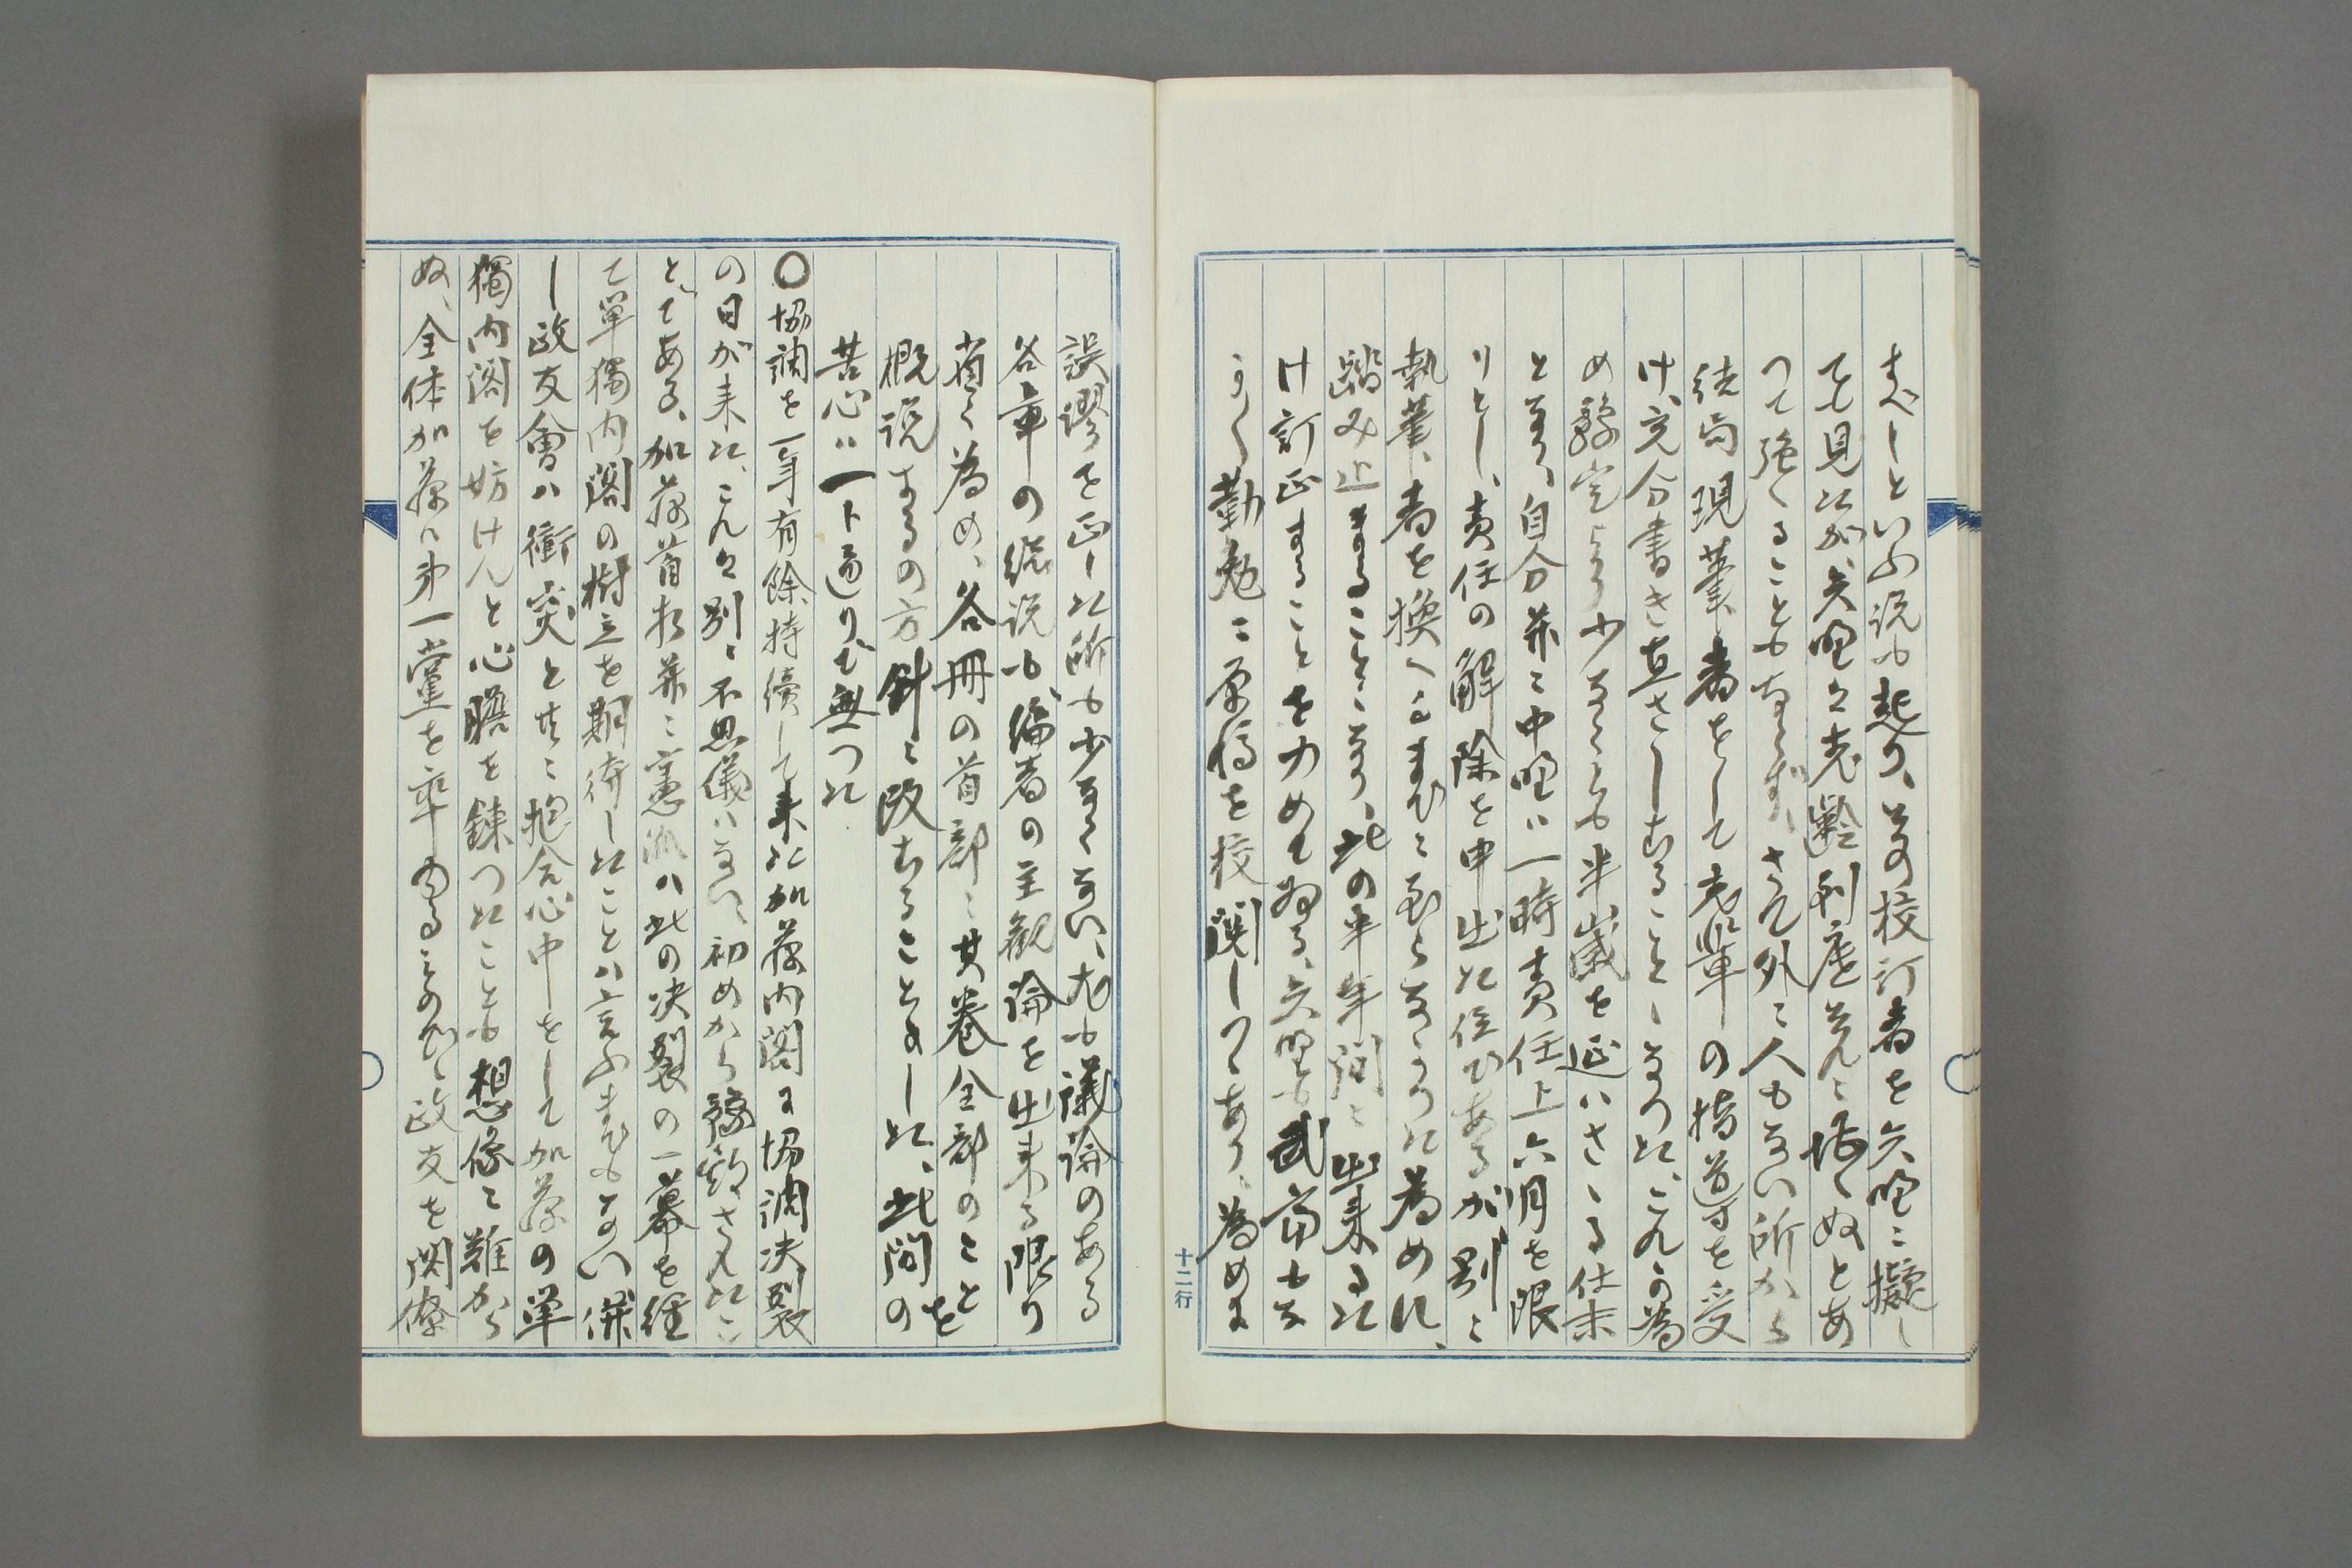 すべしといふ説も起り、其の校訂者を矢野に擬し
ても見たが、矢野は老齢到底其に堪へぬとあ
つて強くることもならず、さりとて外に人もない所から
結局現筆者をして先輩の指導を受
け、充分書き直さしむることゝなつた、これが為
め豫定より少なくも半歳を延ばさゝる仕末
となり、自分并に中野は一時責任上六月を限
りとし、責任の解除を申出た位ひあるが、別に
執筆者を換へるまでに至らなかつた為めに、
踏み止まることゝなり、此の半年間に出来るた
け訂正することを力めて居る、矢野も武富も
よく勤勉に原稿を校閲しつゝあり、為めに
誤謬を正した所も少なくない、尤も議論のある
各章の総説も、編者の主観論を出来る限り
省く為め、各冊の首部に其巻全部のことを
概説するの方針に改むることゝした、此間の
苦心は一ト通りで無つた
〇協調を一年有餘持續して来た加藤内閣に協調決裂
の日が来た、これは別に不思儀はない、初めから豫期されたこ
とである、加藤首相并に憲派ハ此の決裂の一幕を經
て單獨内閣の樹立を期待したことハ言ふまでもない、併
し政友會ハ衝突と共に抱合心中をして加藤の單
獨内閣を妨けんと心膽を錬つたことも想像に難から
ぬ、全体加藤ハ第一黨を率ゆるものだ、政友を閣僚